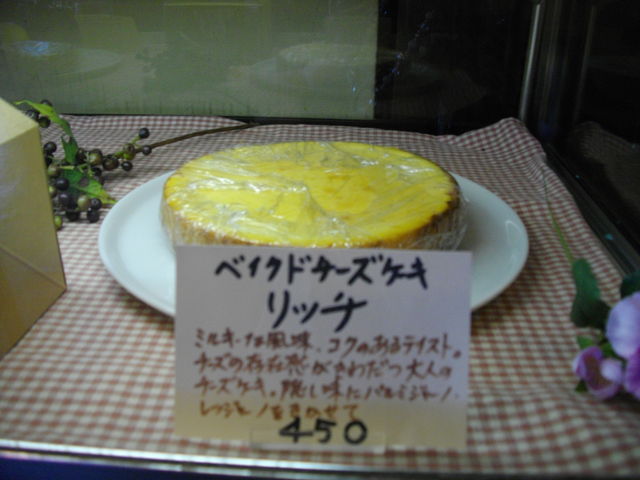 ベイクドチーズケーキ
リッチ
ミルキーな風味、コクのあるテイスト。
チーズの存在感がきわだつ大人の
チーズケーキ。隠し味にパルミジャーノ・
レッジャーノをきかせて
450